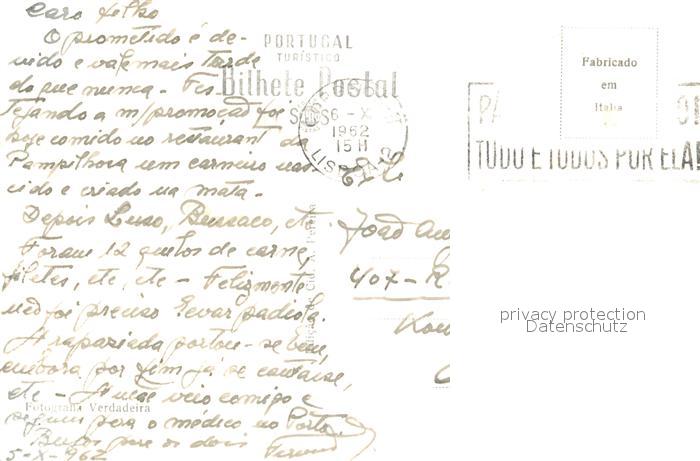 Caro filho
O prometido é de-
vido e vale mais tarde
do que nunca. Fes-
tejando a m/promoção foi
hoje comido no restaurant da
Pampilhosa um carneiro nas-
cido e criado na mata.
Depois Luso, Bussaco, etc.
Foram 12 quilos de carne,
filetes, etc, etc - Felizmente
não foi preciso levar padiola.
A rapaziada portou-se bem,
embora por fim já se cantasse,
etc - A mãe veio comigo e
seguiu para o médico no Porto.
Beijos para os dois
5-X-962
PORTUGAL
TURÍSTICO
Bilhete Postal
6-X
1962
15H
LISBOA
TUDO E TODOS POR ELA!
Fabricado
em
Italia
João
407 - R
A. Pereira
Fotografia Verdadeira
privacy protection
Datenschutz